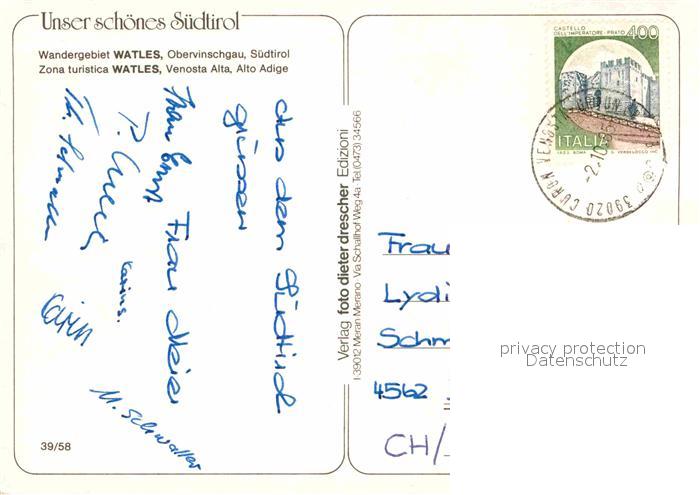 Unser schönes Südtirol
Wandergebiet WATLES, Obervinschgau, Südtirol
Zona turistica WATLES, Venosta Alta, Alto Adige
aus dem Südtirol
grüssen
Frau Meier
Karins.
M. Schwaller
39/58
Verlag foto dieter drescher Edizioni
I-39012 Meran Merano · Via Schallhof Weg 4a · Tel. (0473) 34566
CASTELLO
DELL'IMPERATORE - PRATO 400
ITALIA
39020 CURON VENOSTA
Frau
Lydi
Schm
4562
CH/
privacy protection
Datenschutz